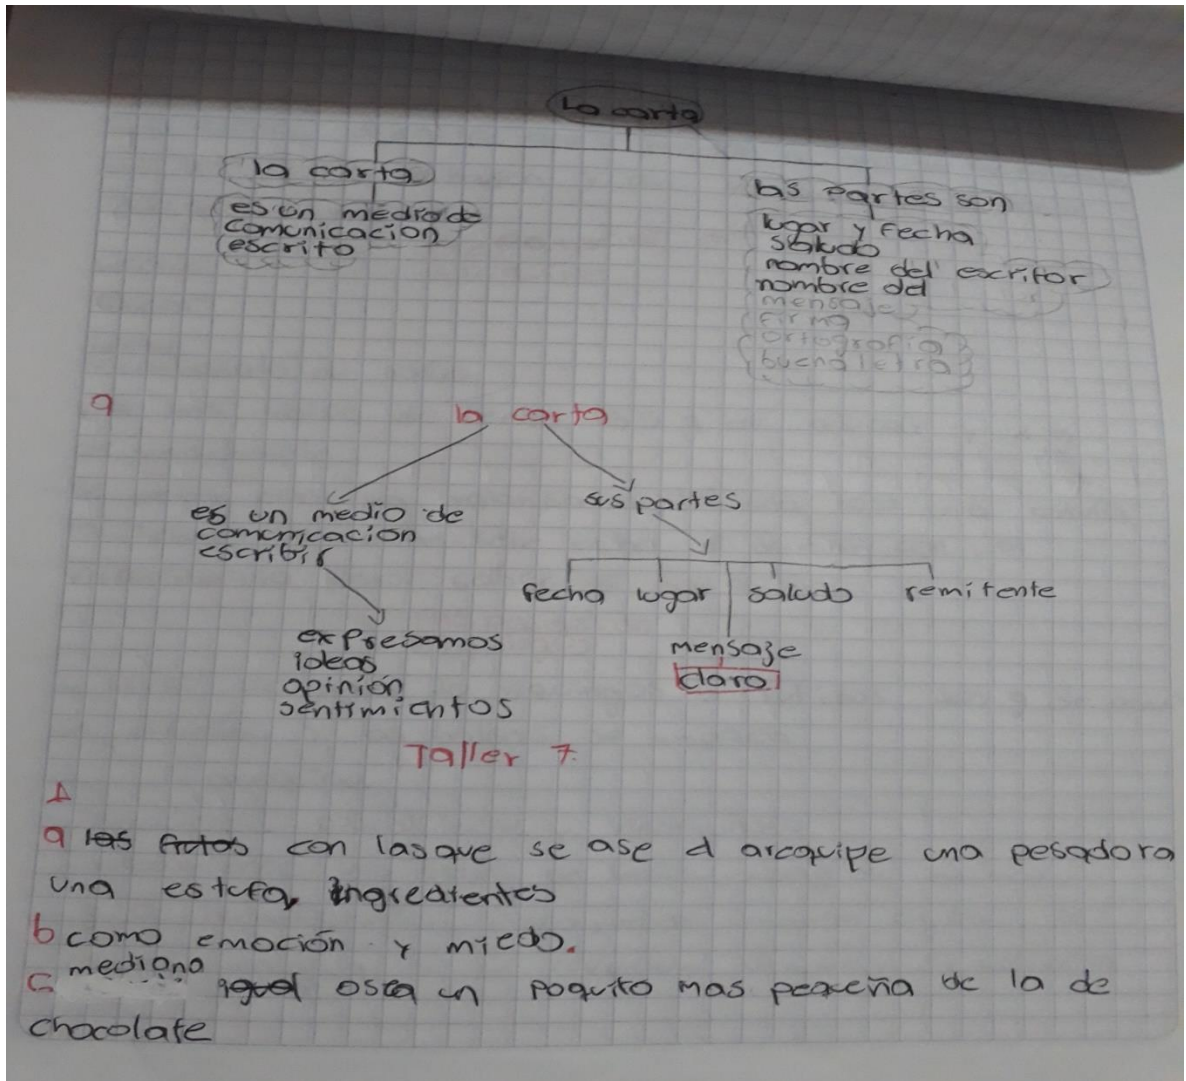 La carta
la carta
es un medio de
comunicacion
escrito
las partes son
lugar y fecha
saludo
nombre del escritor
nombre del
mensaje
firma
ortografia
buena letra
a
la carta
es un medio de
comunicación
escribir
expresamos
ideas
opinión
sentimientos
sus partes
fecha lugar saludo remitente
mensaje
claro
Taller 7.
1
a las frutas con las que se ase el arequipe una pesadora
una estufa, ingredientes
b como emoción y miedo.
mediana
c igual osea un poquito mas pequeña de la de
chocolate